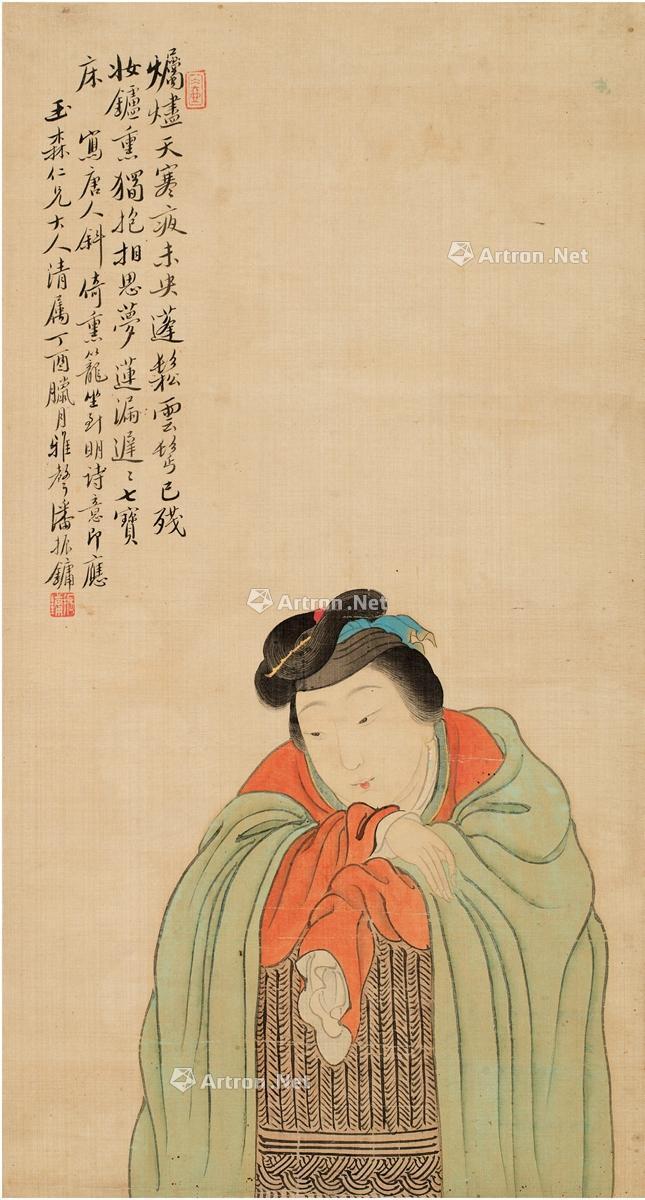 爥燼天寒夜未央蓬鬆雲髩已殘
妝鑪熏獨抱相思夢蓮漏遲〻七寶
床　寫唐人斜倚熏籠坐到明詩意即應
玉森仁兄大人清属丁酉臘月雅聲潘振鏞
Artron.Net
Artron.Net
Artron.Net